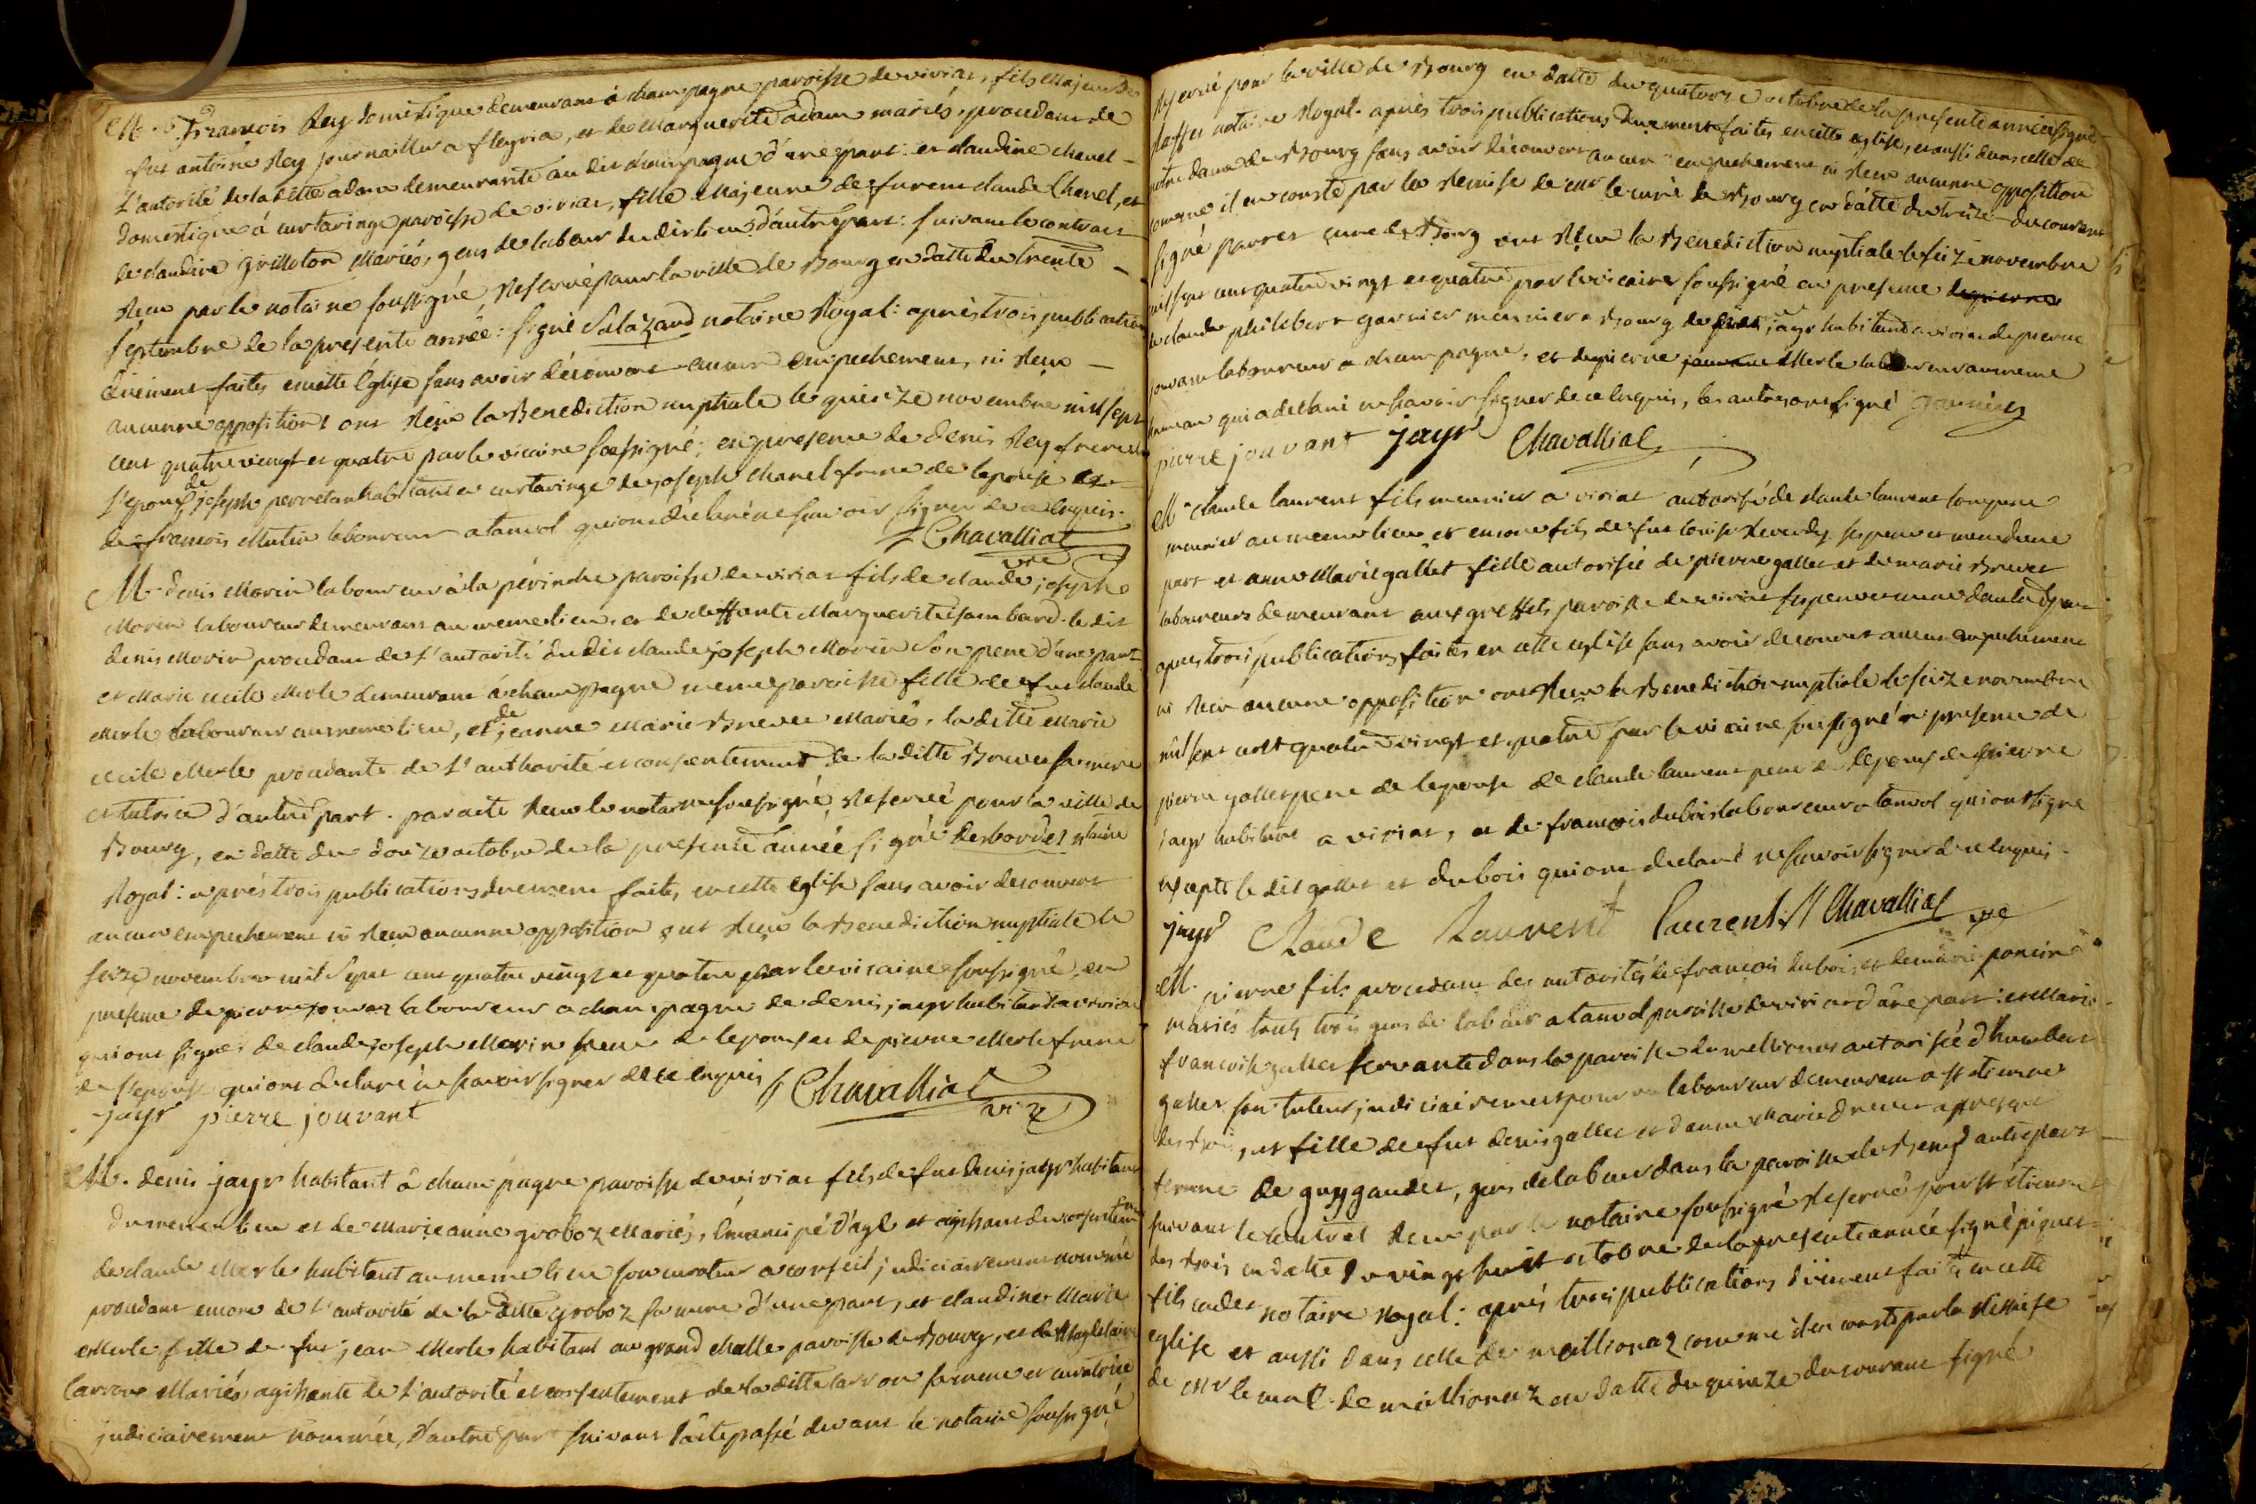 M. François Rey domestique demeurant à champagne paroisse de viriat, fils majeur de
fut antoine Rey journaillier a fleyria, et de Marguerite adam mariés, procedant de
L'autorité de laditte adam demeurante au dit champagne d'une part : et claudine chanel
domestique à curtaringe paroisse de viriat, fille Majeure de furent claude Chanel, et
de claudine grilloton Mariés, gens de labeur dudit lieu d'autre part : suivant le contract
Reçu par le notaire soussigné Reservé pour la ville de Bourg en datte du trente
septembre de la presente année : signé Salazard notaire Royal : après trois publications
duement faites en cette Eglise sans avoir découvert aucun empechement, ni Reçu
aucunne opposition ont Reçu la Benediction nuptiale le quinze novembre mil sept
cent quatre vingt et quatre par le vicaire soussigné ; en presence de denis Rey frere de
L'epoux, de joseph perretan habitant en curtaringe de joseph chanel frere de l'epouse et
de françois Mutin laboureur a tanvol qui ont declaré ne savoir signer de ce enquis.
Chavalliat
vre
M. denis Morin laboureur à la périnche paroisse de viriat fils de claude joseph
Morin laboureur demeurant au meme lieu, et de deffunte Marguerite jambard. le dit
denis Morin procedant de l'autorité dudit claude joseph Morin son pere d'une part
et Marie cecile Merle demeurant à champagne meme paroisse fille de fut claude
Merle laboureur au meme lieu, et de jeanne Marie Brevet Mariés, la ditte Marie
cecile Merle procedante de L'authorité et consentement de la ditte Brevet sa mere
et tutrice d'autre part. par acte Reçu le notaire soussigné, Reservé pour la ville de
Bourg, en datte du douze octobre de la presente année signé desbordes ntaire
Royal : après trois publications duement faites en cette Eglise sans avoir decouvert
aucun empechement ni Reçu aucunne opposition ont Reçu la Benediction nuptiale le
seize novembre mil sept cent quatre vingt et quatre par le vicaire soussigné, en
presence de pierre jouvant laboureur a champagne de denis jayr habitant a viriat
qui ont signé, de claude joseph Morin frere de l'epoux et de pierre Merle frere
de l'epouse qui ont declaré ne savoir signer de ce enquis Chavalliat
jayr pierre jouvant vire
M. denis jayr habitant à champagne paroisse de viriat fils de fut denis jayr habitant
du meme lieu et de Marie anne groboz Mariés, émancipé d'age et agissant du consentement
de claude Merle habitant au meme lieu son curateur a conseil judiciairement nommé
procedant encore de l'autorité de la ditte groboz sa mere d'une part, et claudine Marie
Merle fille de fut jean Merle habitant au grand challe paroisse de Bourg, et de Magdelaine
carron Mariés, agissante de l'autorité et consentement de la ditte carron sa mere et curatrice
judiciairement nommée, d'autre part suivant l'acte passé devant le notaire soussigné
Reservé pour la ville de Bourg en datte du quatorze octobre de la presente année signé
notaire Royal. après trois publications duement faites en cette eglise, et aussi dans celle de
notre dame de Bourg sans avoir découvert aucun empechement ni Reçu aucunne opposition
comme il en conste par la Remise de mr le curé de Bourg en datte du treize du courant
signé curé de Bourg ont Reçu la Benediction nuptiale le seize novembre
mil sept cent quatre vingt et quatre par le vicaire soussigné en presence
de claude philibert garnier meunier a Bourg de jayr habitant a viriat de pierre
jouvant laboureur a champagne, et de pierre Merle laboureur au meme
qui a declaré ne savoir signer de ce enquis, les autres ont signé garnier
pierre jouvant jayr Chavalliat
M. claude laurent fils meunier a viriat autorisé de claude laurent son pere
meunier au meme lieu et encore fils de fut ses pere et mere d'une
part et anne Marie gallet fille autorisée de pierre gallet et de marie Brevet
laboureurs demeurant aux greffets paroisse de viriat ses pere et mere d'autre part
apres trois publications faites en cette eglise sans avoir decouvert aucun empechement
ni Reçu aucunne opposition ont Reçu la Benediction nuptiale le seize novembre
mil sept cent quatre vingt et quatre par le vicaire soussigné en presence de
pierre gallet pere de l'epouse de claude laurent pere de l'epoux de pierre
jayr habitant a viriat, et de françois dubois laboureur a tanvol qui ont signé
excepté le dit gallet et dubois qui ont declaré ne savoir signer de ce enquis.
jayr Claude Laurent laurent Chavalliat vre
M. pierre fils procedant des autorités de françois dubois et de marie poncin
mariés touts trois gens de labeur a tanvol paroisse de viriat d'une part : et Marie
françoise gallet servante dans la paroisse de meillionas autorisée d'humbert
gallet son tuteur judiciairement pourvu laboureur demeurant a st etienne
des Bois, et fille de fut denis gallet et d'anne Marie Brevet a present
femme de guy gaudet, gens de labeur dans la paroisse de d'autre part
suivant le contrat Reçu par le notaire soussigné Reservé pour st étienne
des Bois en datte du vingt huit octobre de la presente année signé piquet
fils cadet notaire Royal : après trois publications duement faites en cette
eglise et aussi dans celle de meillionaz comme il en conste par la Remise
de mr le curé de meillionaz en datte du quinze du courant signé